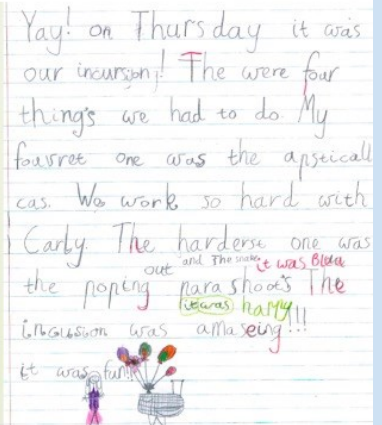 Yay! on Thursday it was
our incursion! The were four
things we had to do. My
fouvret one was the apsticall
cas. We work so hard with
Carly. The harderst one was
out and The snake it was Black
the poping parashoots The
it was harry
incusion was amaseing!!!
it was fun!